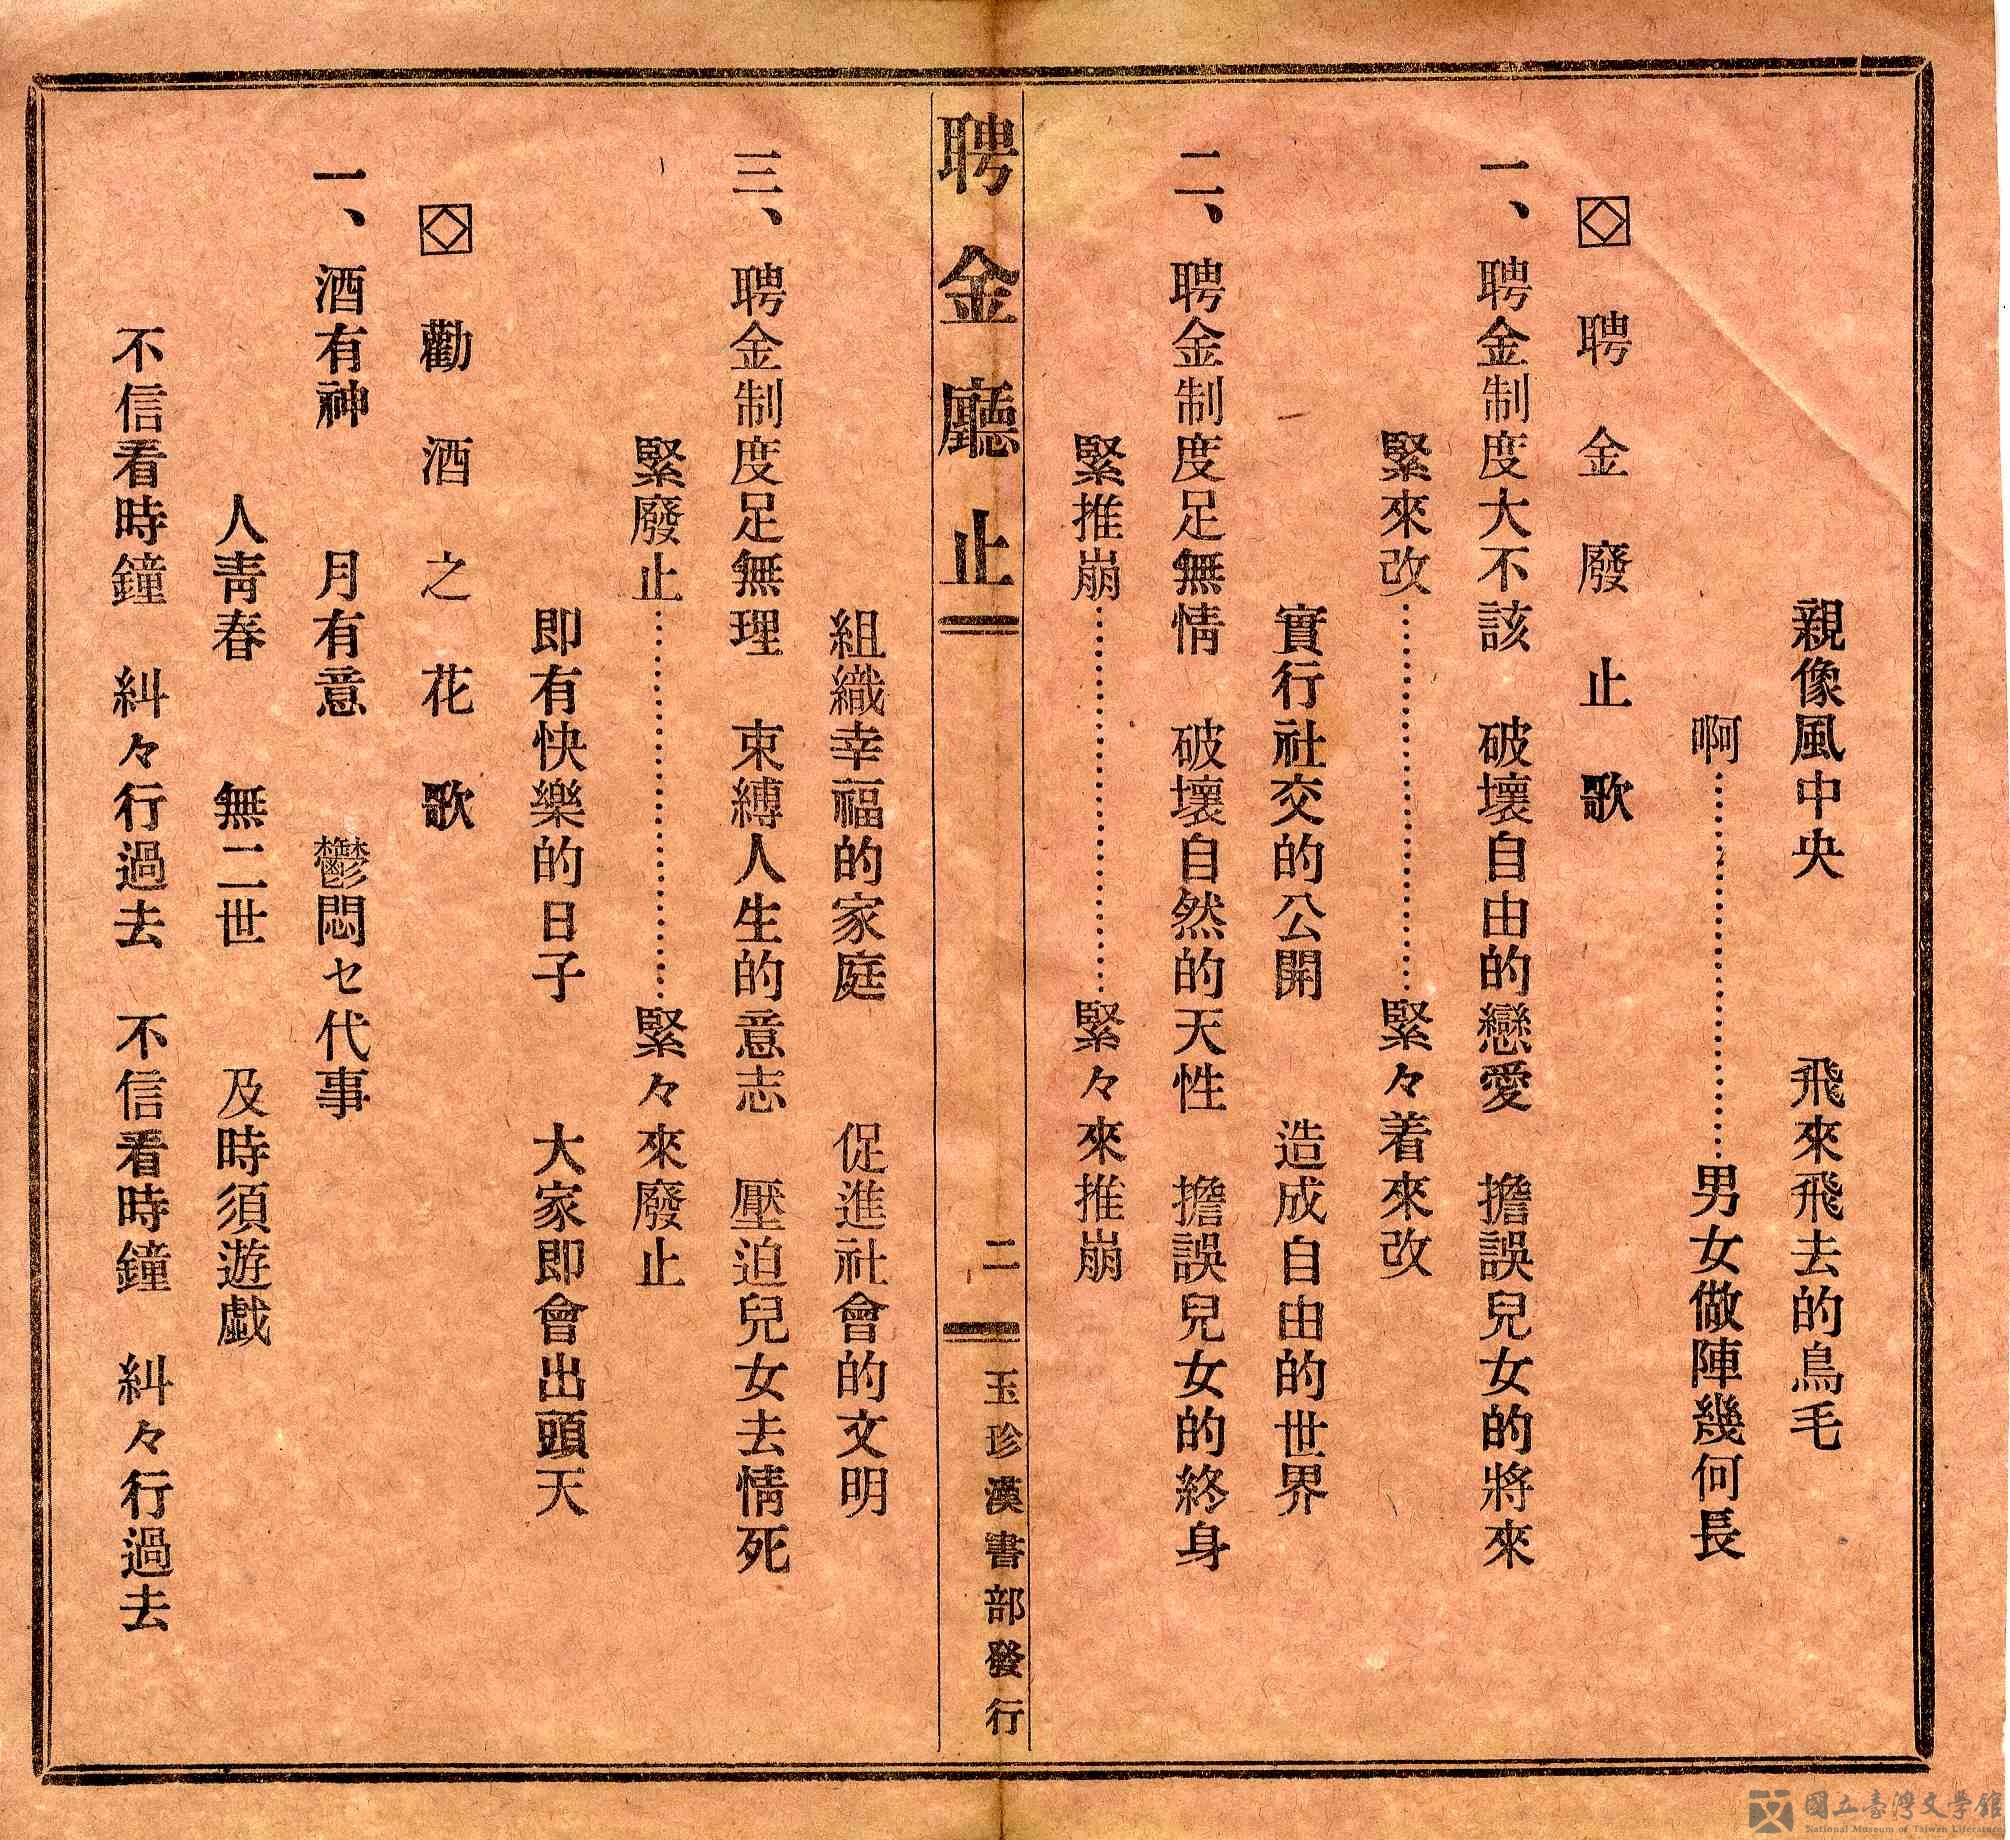 親像風中央　飛來飛去的鳥毛
啊……………………男女做陣幾何長
聘金廢止歌
一、聘金制度大不該　破壞自由的戀愛　擔誤兒女的將來
緊來改……………………緊々着來改
實行社交的公開　造成自由的世界
二、聘金制度足無情　破壞自然的天性　擔誤兒女的終身
緊推崩……………………緊々來推崩
聘金廳止
二
玉珍漢書部發行
組織幸福的家庭　促進社會的文明
三、聘金制度足無理　束縛人生的意志　壓迫兒女去情死
緊廢止……………………緊々來廢止
即有快樂的日子　大家即會出頭天
勸酒之花歌
一、酒有神　月有意　鬱悶セ代事
人靑春　無二世　及時須遊戯
不信看時鐘　糾々行過去　不信看時鐘　糾々行過去
國立臺灣文學館
National Museum of Taiwan Literature